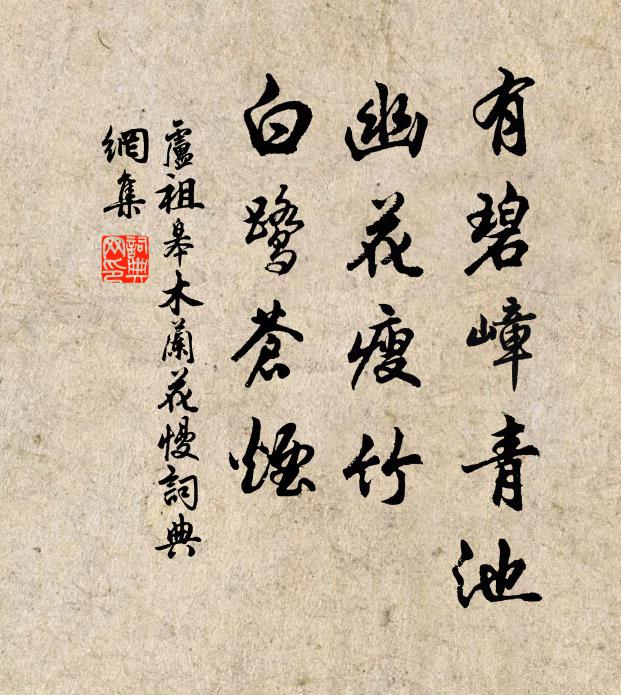 有碧嶂青池
幽花瘦竹
白鹭苍煙
盧祖皋木蘭花慢詞典
網集
詞典
网印